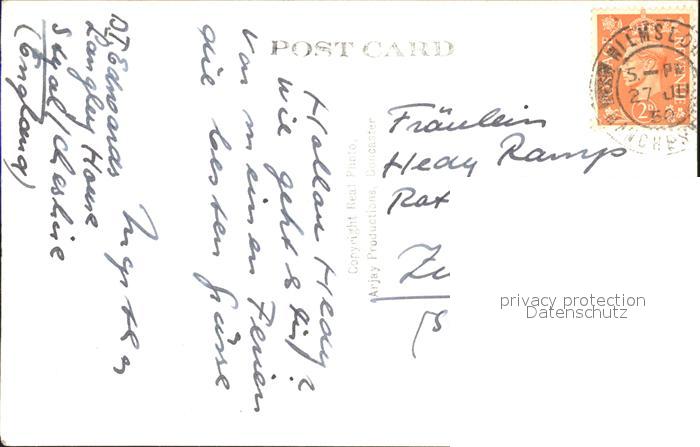 POST CARD
Hallau Hedy
wie geht's dir?
Von meinen Ferien
die besten Grüsse
D/Edwards
Langley House
Styal/Cheshire
(England)
Copyright Real Photo.
Arjay Productions, Doncaster
Fräulein
Hedy Ramp
Rat
Zu
(S
WILMSLOW
5 - PM
27 JU
50
MANCHE
privacy protection
Datenschutz